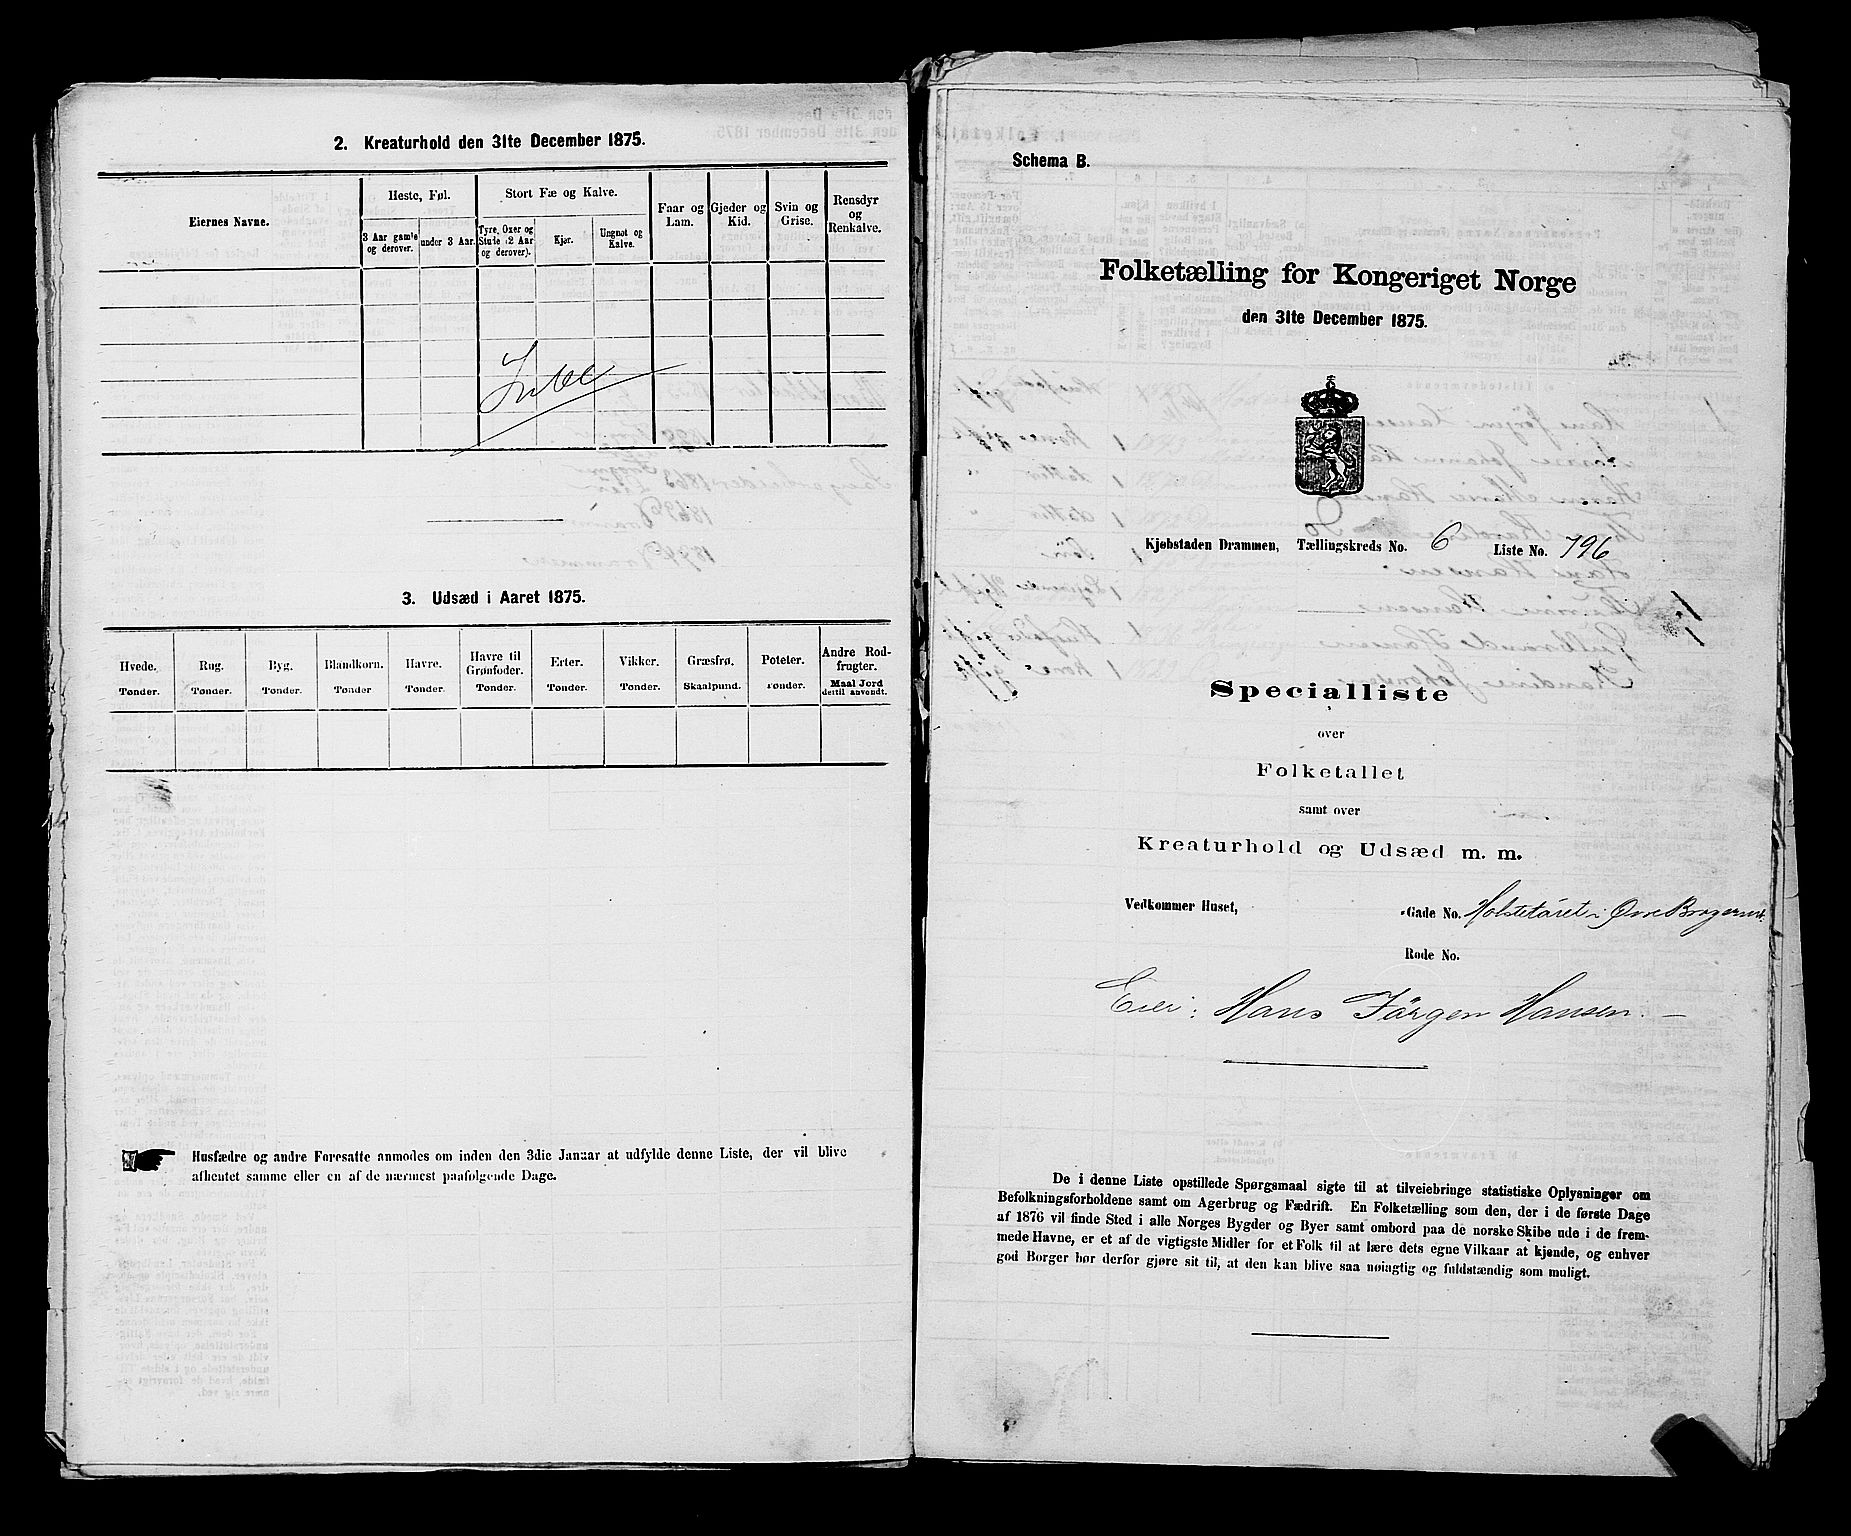 2. Kreaturhold den 31te December 1875.
Eiernes Navne.
Heste, Føl.
3 Aar gamle og derover.
under 3 Aar.
Stort Fæ og Kalve.
Tyre, Oxer og Stude (2 Aar og derover).
Kjør.
Ungnøt og Kalve.
Faar og Lam.
Gjeder og Kid.
Svin og Grise.
Rensdyr og Renkalve.
3. Udsæd i Aaret 1875.
Hvede. Tønder.
Rug. Tønder.
Byg. Tønder.
Blandkorn. Tønder
Havre. Tønder.
Havre til Grønfoder. Tønder.
Erter. Tønder.
Vikker. Tønder.
Græsfrø. Skaalpund.
Poteter. Tønder.
Andre Rodfrugter. Maal Jord dertil anvendt.
Husfædre og andre Foresatte anmodes om inden den 3die Januar at udfylde denne Liste, der vil blive
afhentet samme eller en af de nærmest paafølgende Dage.
Schema B.
Folketælling for Kongeriget Norge
den 31te December 1875.
Kjøbstaden Drammen, Tællingskreds No. 6 Liste No. 796
Specialliste
over
Folketallet
samt over
Kreaturhold og Udsæd m. m.
Vedkommer Huset, Gade No. i Øvre
Rode No.
Eier: Hans Jörgen Hansen.
De i denne Liste opstillede Spørgsmaal sigte til at tilveiebringe statistiske Oplysninger om
Befolkningsforholdene samt om Agerbrug og Fædrift. En Folketælling som den, der i de første Dage
af 1876 vil finde Sted i alle Norges Bygder og Byer samt ombord paa de norske Skibe ude i de frem-
mede Havne, er et af de vigtigste Midler for et Folk til at lære dets egne Vilkaar at kjende, og enhver
god Borger bør derfor gjøre sit til, at den kan blive saa nøiagtig og fuldstændig som muligt.